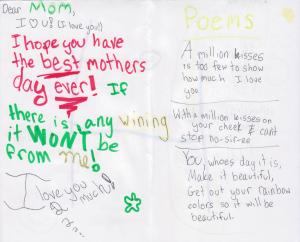 Dear Mom,
I ♡ U! (I love you!)
I hope you have
the best mothers
day ever! If
there is any wining
it WON'T be
from me!
I love you
so much!
Poems
A million kisses
is too few to show
how much I love
you
With a million kisses on
your cheek I cant
stop no-sir-ee
You, whoes day it is,
Make it beautiful,
Get out your rainbow
colors so it will be
beautiful.